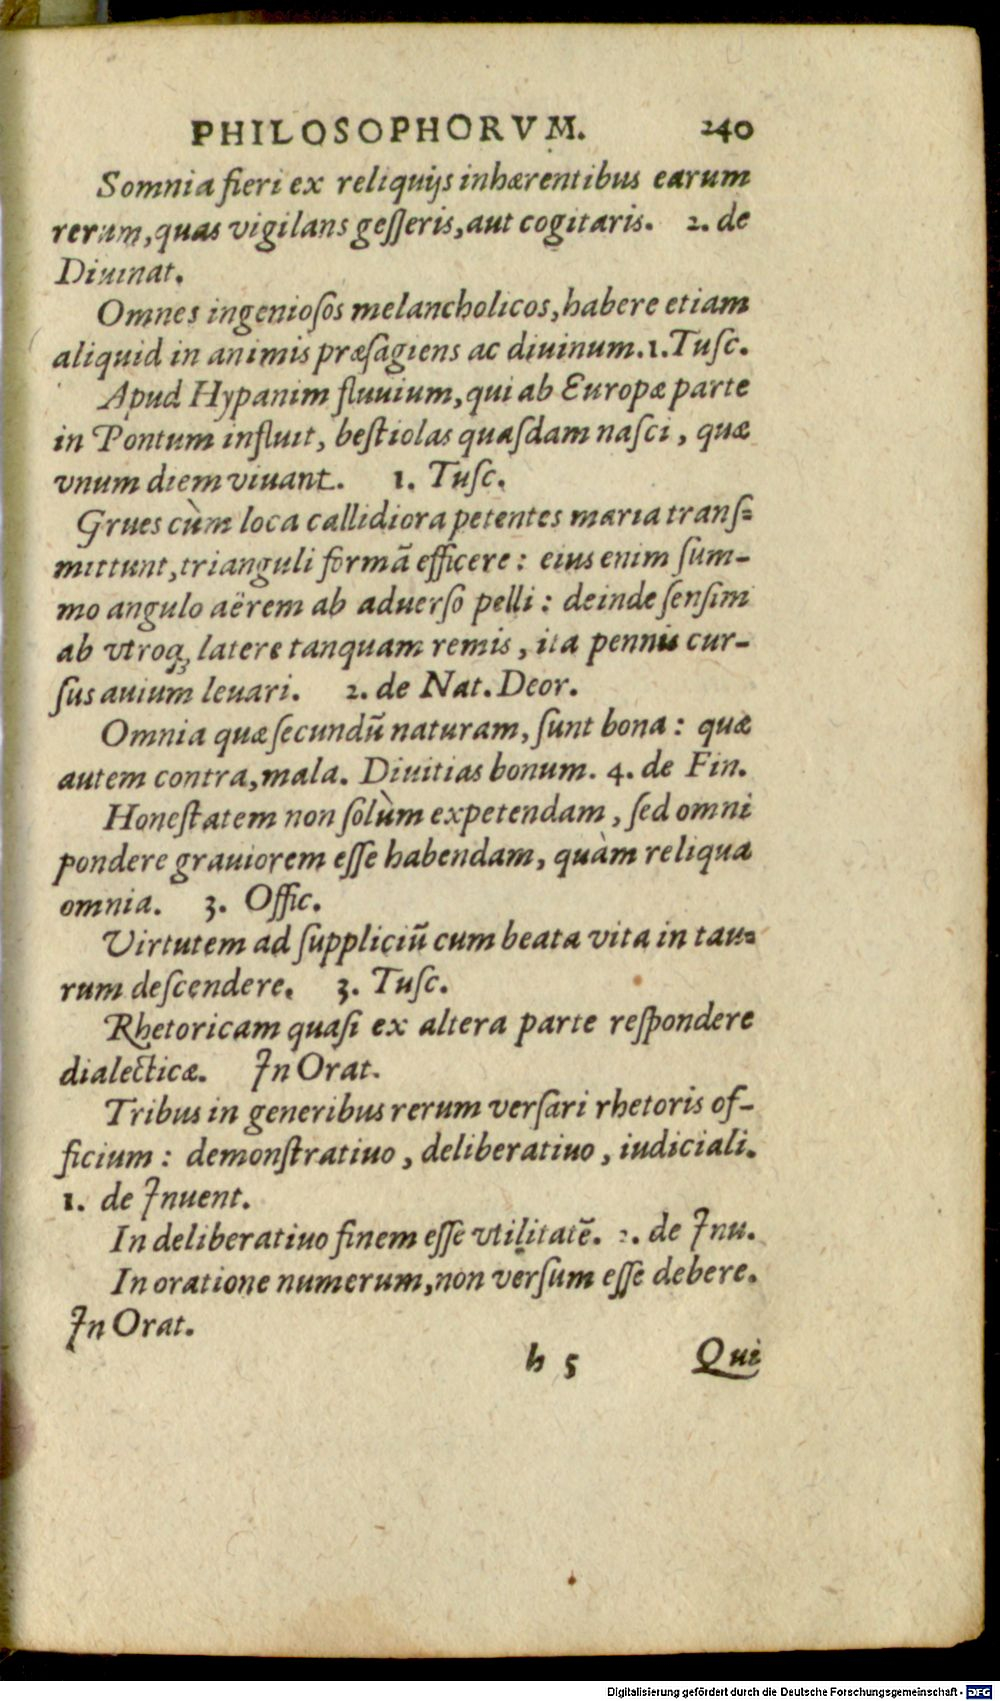 PHILOSOPHORVM. 240
Somnia fieri ex reliquijs inhærentibus earum
rerum, quas vigilans geſſeris, aut cogitaris. 2. de
Diuinat.
Omnes ingenioſos melancholicos, habere etiam
aliquid in animis præſagiens ac diuinum. 1. Tuſc.
Apud Hypanim fluuium, qui ab Europæ parte
in Pontum influit, beſtiolas quaſdam naſci, quæ
vnum diem viuant. 1. Tuſc.
Grues cùm loca callidiora petentes maria tranſ=
mittunt, trianguli formā efficere: eius enim ſum-
mo angulo aërem ab aduerſo pelli: deinde ſenſim
ab vtroq; latere tanquam remis, ita pennis cur-
ſus auium leuari. 2. de Nat. Deor.
Omnia quæ ſecundū naturam, ſunt bona: quæ
autem contra, mala. Diuitias bonum. 4. de Fin.
Honeſtatem non ſolùm expetendam, ſed omni
pondere grauiorem eſſe habendam, quàm reliqua
omnia. 3. Offic.
Virtutem ad ſuppliciū cum beata vita in tau=
rum deſcendere. 3. Tuſc.
Rhetoricam quaſi ex altera parte reſpondere
dialecticæ. In Orat.
Tribus in generibus rerum verſari rhetoris of-
ficium: demonſtratiuo, deliberatiuo, iudiciali.
1. de Inuent.
In deliberatiuo finem eſſe vtilitatē. 2. de Inu.
In oratione numerum, non verſum eſſe debere.
In Orat.
h 5 Qui
Digitalisierung gefördert durch die Deutsche Forschungsgemeinschaft - DFG